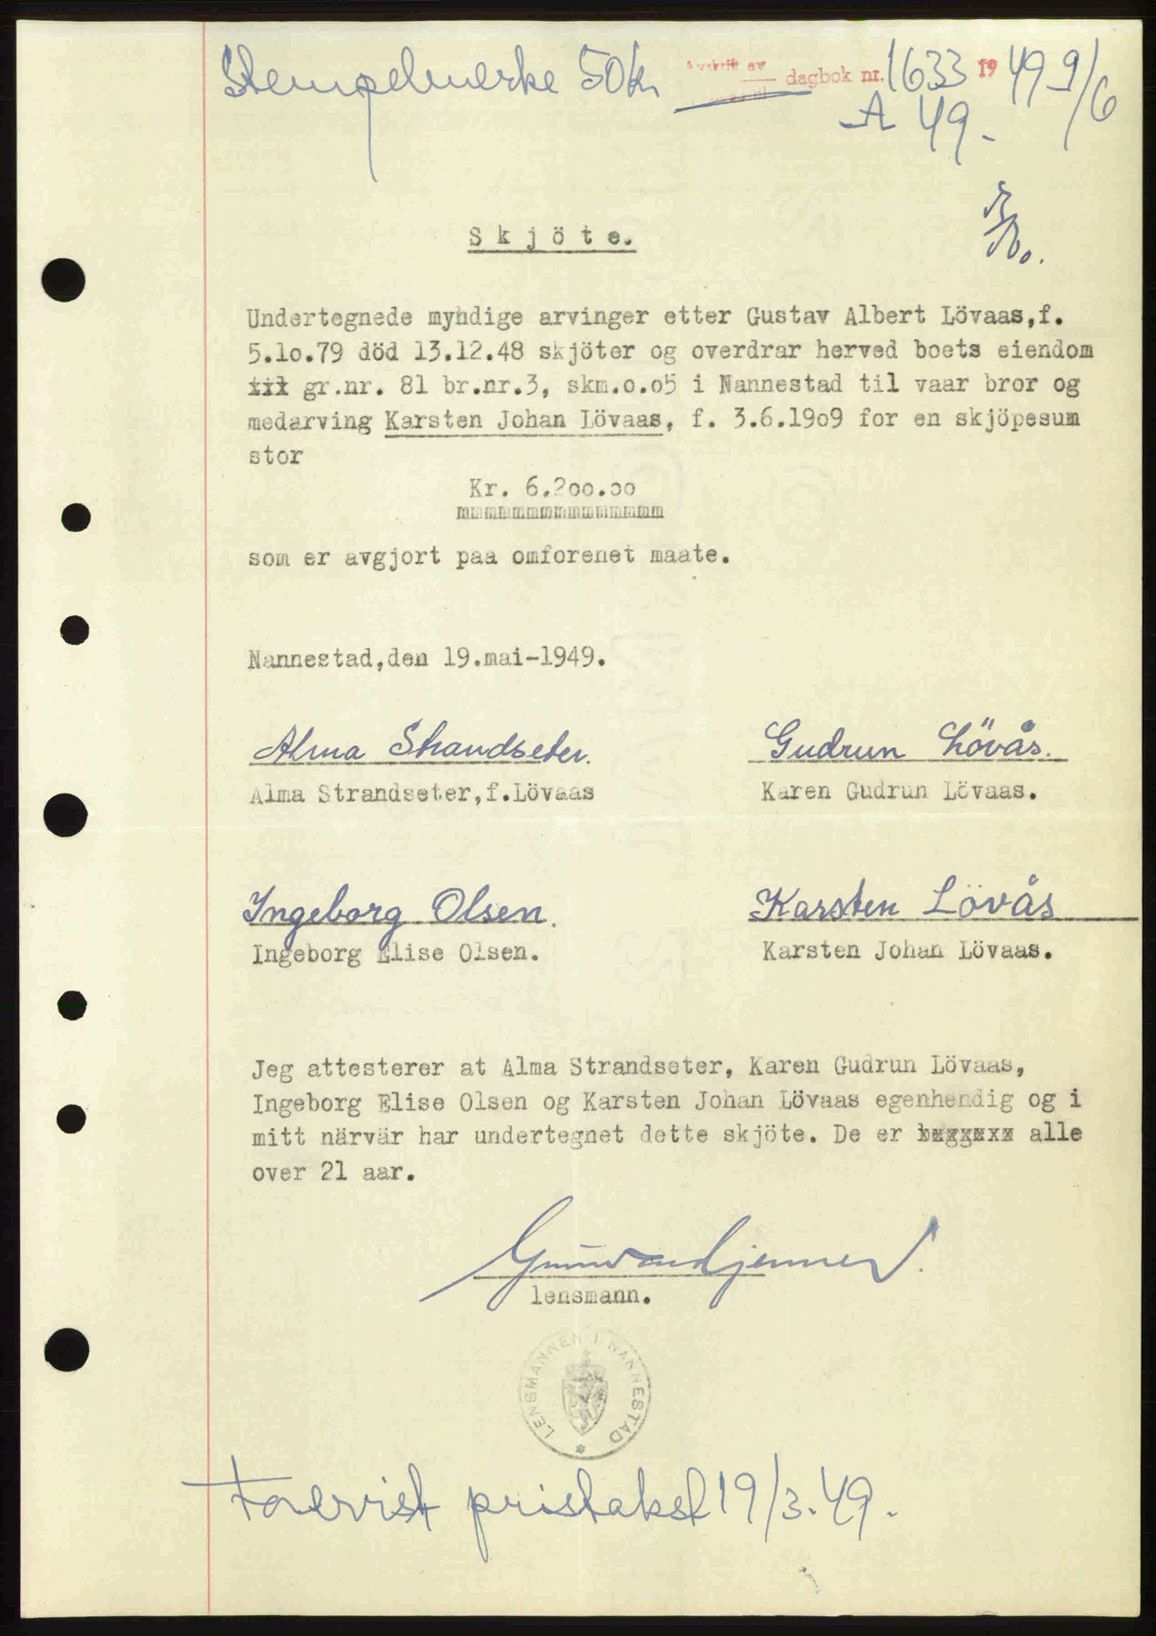 Stempelmerke 50 kr
Avskrift av dagbok nr. 1633 1949 9/6
A 49.
Skjöte.
Undertegnede myndige arvinger etter Gustav Albert Lövaas,f.
5.1o.79 död 13.12.48 skjöter og overdrar herved boets eiendom
gr.nr. 81 br.nr.3, skm.o.o5 i Nannestad til vaar bror og
medarving Karsten Johan Lövaas, f. 3.6.19o9 for en skjöpesum
stor
Kr. 6.2oo.oo
som er avgjort paa omforenet maate.
Nannestad,den 19.mai-1949.
Alma Strandseter. Gudrun Lövås.
Alma Strandseter,f.Lövaas Karen Gudrun Lövaas.
Ingeborg Olsen. Karsten Lövås
Ingeborg Elise Olsen. Karsten Johan Lövaas.
Jeg attesterer at Alma Strandseter, Karen Gudrun Lövaas,
Ingeborg Elise Olsen og Karsten Johan Lövaas egenhendig og i
mitt närvär har undertegnet dette skjöte. De er alle
over 21 aar.
lensmann.
LENSMANNEN I NANNESTAD
Forevist pristakst 19/3.49.